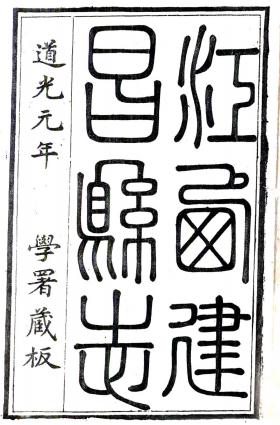 江西建
昌縣志
道光元年 學署藏板